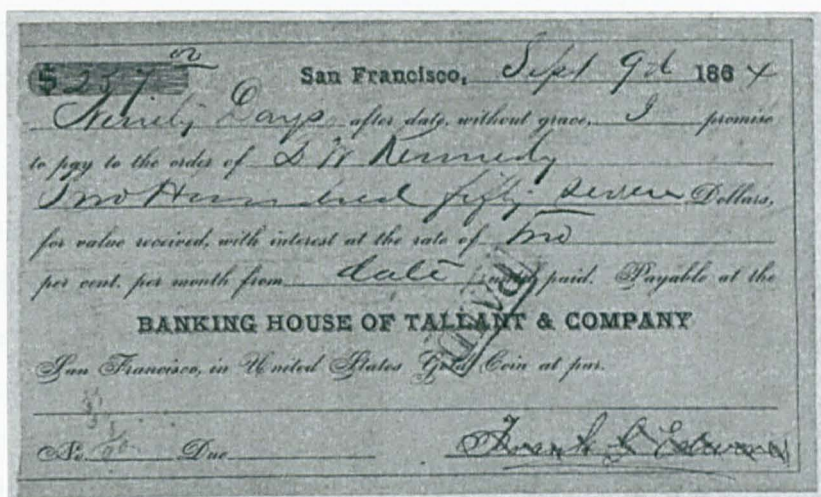 $ 257 00
San Francisco, Sept 9d 1864
Ninety Days after date, without grace, I promise
to pay to the order of D W Kennedy
Two Hundred fifty seven Dollars,
for value received, with interest at the rate of Two
per cent. per month from date until paid. Payable at the
BANKING HOUSE OF TALLANT & COMPANY
San Francisco, in United States Gold Coin at par.
No. Due
Frank G Edwards